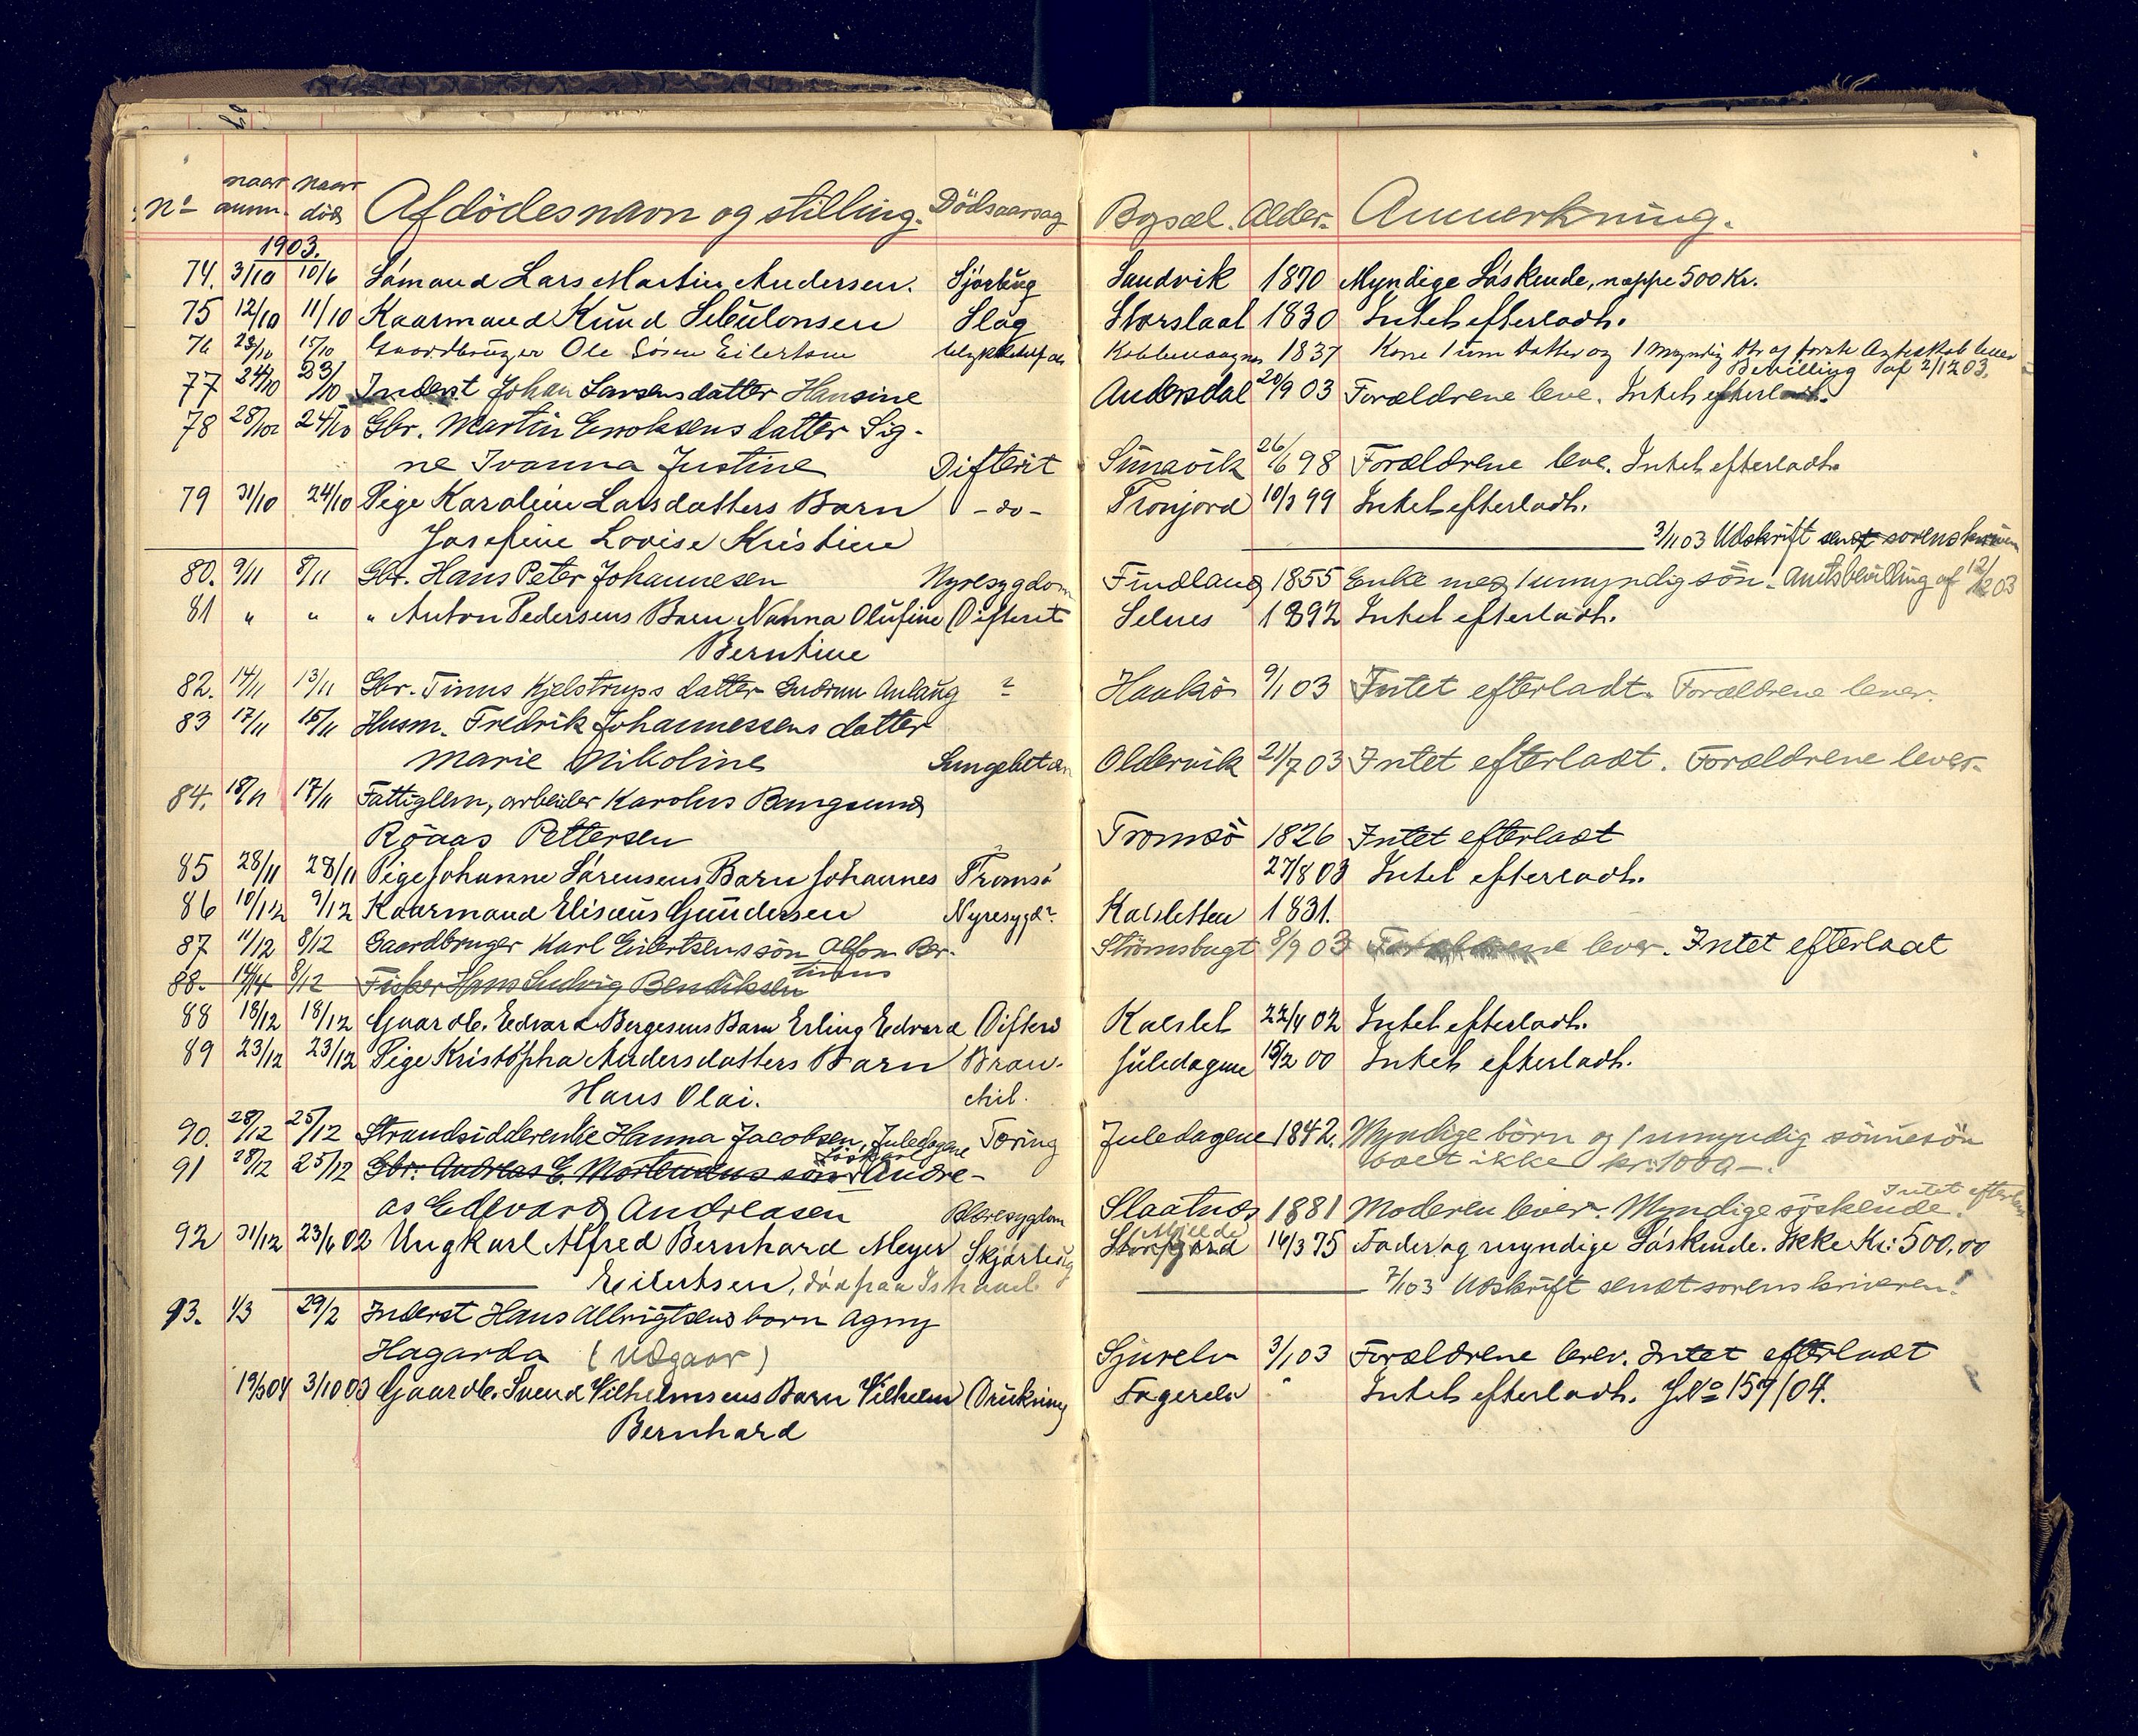 No naar anm. naar död Afdödes navn og stilling. Dödsaarsag Bopæl. Alder. Anmerkning.
1903.
74. 3/10 10/6 Sömand Lars Martin Andersen. Sandvik 1870 Myndige Söskende, næppe 500 Kr.
75 12/10 11/10 Kaarmand Knud Sebulonsen Slag Storslaat 1830 Intet efterladt.
76 15/10 Gaardbruger Ole Sören Eilertsen 1837 Kone 1 um datter og 1 myndig dtr af förste Ægteskab lever
Bevilling af 2/12 03.
77 24/10 23/10 Inderst Johan Larsens datter Hansine Andersdal 20/9 03 Forældrene leve. Intet efterladt.
78 24/10 Gbr. Martin Enoksens datter Sig-
ne Ivanna Justine Difterit Simavik 26/6 98 Forældrene leve. Intet efterladt.
79 31/10 24/10 Pige Karoline Larsdatters Barn - do - Tronjord 10/3 99 Intet efterladt.
Josefine Lovise Kristine 3/11 03 Udskrift sendt sorenskriveren
80. 9/11 8/11 Gbr. Hans Peter Johannesen Nyresygdom Findland 1855 Enke med 1 umyndig sön. Amtsbevilling af 12/12 03
81 " " " Anton Pedersens Barn Nanna Olufine Difterit Selnes 1892 Intet efterladt.
Berntine
82. 14/11 13/11 Gbr. Tinus Kjelstrups datter Gudrun Anlaug ? Haakö 9/1 03 Intet efterladt. Forældrene lever.
83 17/11 15/11 Husm. Fredrik Johannessens datter
Marie Nikoline Lungebetæn Oldervik 21/7 03 Intet efterladt. Forældrene lever.
84. 18/11 17/11 Fattiglem, arbeider Karolus Bangsund
Röaas Pettersen Tromsö 1826 Intet efterladt
85 28/11 28/11 Pige Johanne Sörensens Barn Johannes Tromsö 27/8 03 Intet efterladt.
86 10/12 9/12 Kaarmand Elisæus Gundersen Nyresygd. Kalsletten 1831.
87 11/12 8/12 Gaardbruger Karl Eilertsens sön Alfon Ber- Strömsbugt 8/9 03 Forældrene lever. Intet efterladt
tinus
88. 8/12 Fisker Hans Ludvig Bendiksen
88 18/12 18/12 Gaardb. Edvard Bergesens Barn Erling Edvard Difteri Kalslet 22/4 02 Intet efterladt.
89 23/12 23/12 Pige Kristofpha Andersdatters Barn Bron- Juledagene 15/2 00 Intet efterladt.
Hans Olai. chit.
90. 28/12 25/12 Strandsidderenke Hanna Jacobsen, Juledagene Tæring Juledagene 1842. Myndige börn og 1 umyndig sönnesön
boet ikke kr: 1000 -.
91 28/12 25/12 Gbr. Andreas E. Mortensens sön Löskarl Andre-
as Edevard Andreasen Blæresygdom Slaatnes 1881 Moderen lever. Myndige söskende. Intet efterladt
92 31/12 23/6 02 Ungkarl Alfred Bernhard Meyer Skjörbug Storfjord Mjelde 16/3 75 Fader og myndige Söskende. Ikke Kr: 500,00
Eilertsen, död paa Ishavet 7/1 03 Udskrift sendt sorenskriveren!
93. 1/3 29/2 Inderst Hans Albrigtsens barn Agny
Hagarda (Udgaar) Sjurelv 3/1 03 Forældrene lever. Intet efterladt
19/3 04 3/10 03 Gaardb. Svend Vilhelmsens Barn Vilhelm Drukning Fagerelv " Intet efterladt. JNo 157/04.
Bernhard